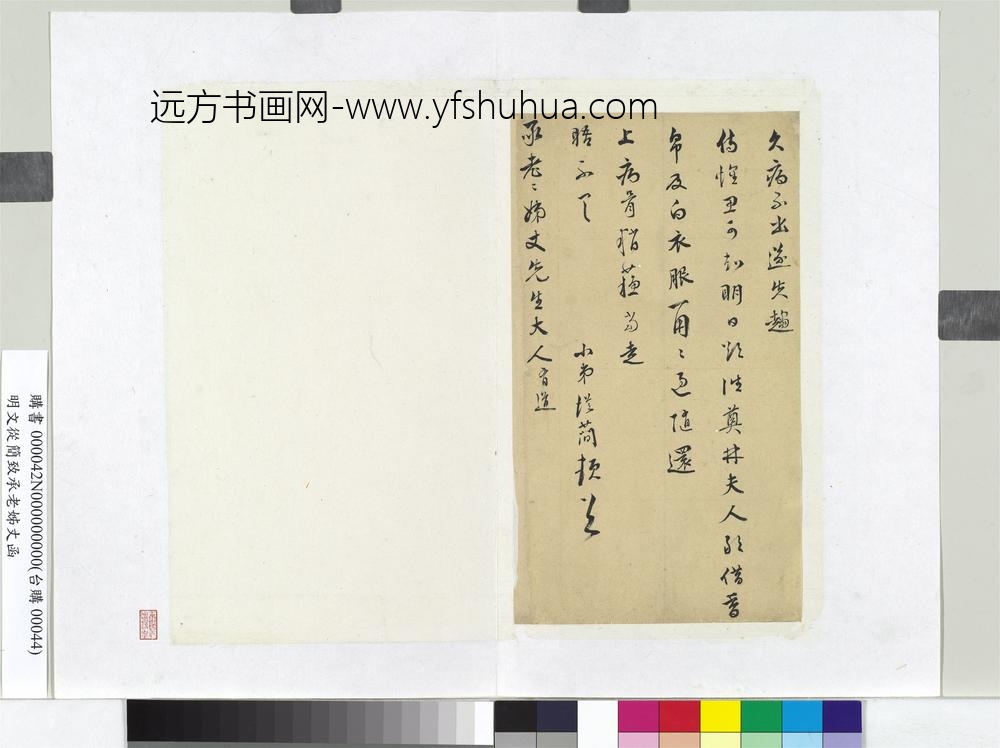 远方书画网-www.yfshuhua.com
久病不出遂失趨
侍惟思可知明日欲往奠林夫人敢借香
帛及白衣服一用用過随還
上病骨稍蘇當走
晤不一
小弟從簡頓首
承老老姊丈先生大人有道
購書 000042N000000000(台購 00044)
明文從簡致承老姊丈函